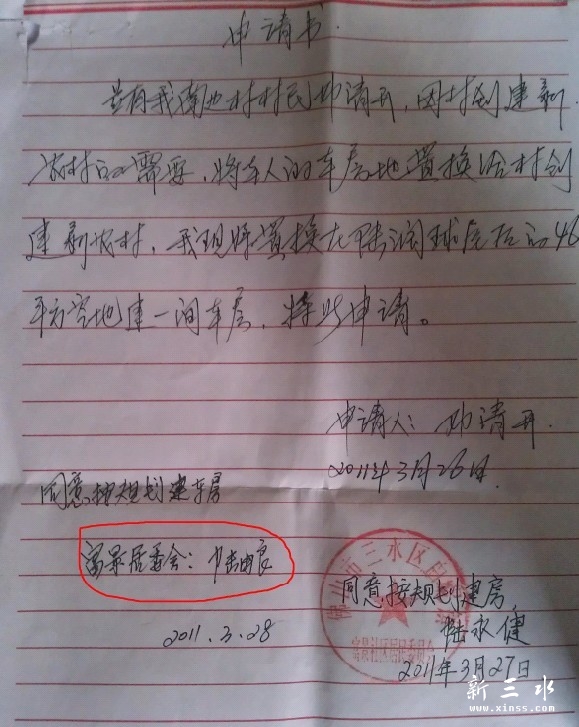 申请书.
兹有我南边村村民邝清开,因村创建新
农村的需要,将本人的车房地置换给村创
建新农村,我现将置换在陆润球房后的46
平方空地建一间车房,特此申请。
申请人:邝清开.
2011年3月26日.
同意按规划建车房
富景居委会:
2011.3.28
佛山市三水区
同意按规划建房
陆永健
2011年3月27日
新三水
www.xinss.com